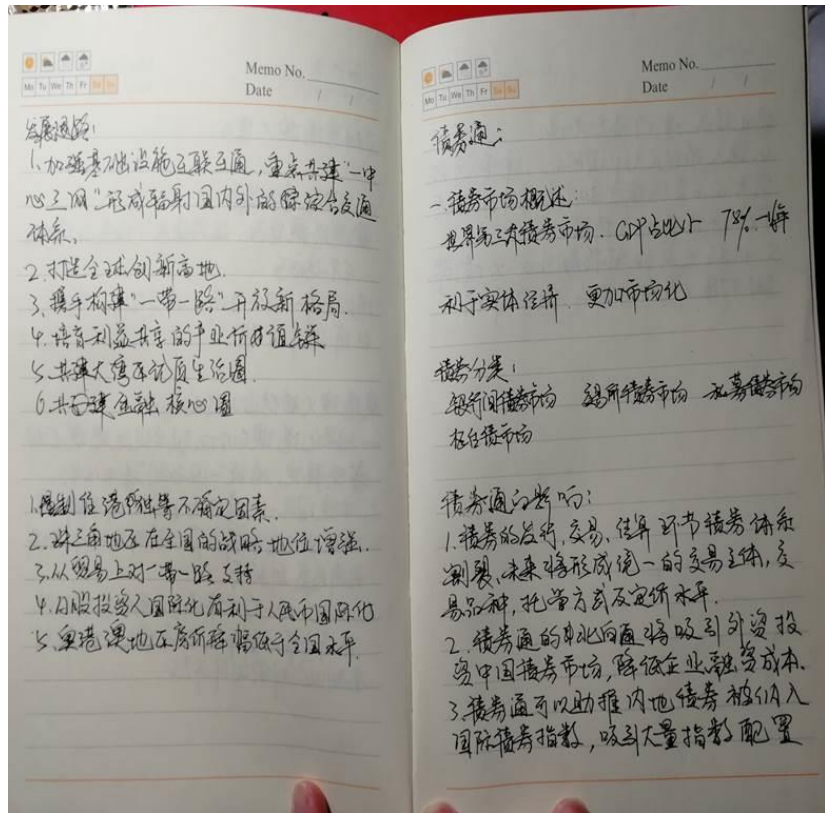 Memo No.
Mo Tu We Th Fr Sa Su
Date / /
发展思路:
1.加强基础设施互联互通,重点共建"一中
心三网"形成辐射国内外的综合交通
体系。
2.打造全球创新高地.
3.携手构建"一带一路"开放新格局.
4.培育利益共享的产业价值链
5.共建大湾区优质生活圈.
6.共建金融核心圈
1.遏制住港独等不确定因素.
2.珠三角地区在全国的战略地位增强.
3.从贸易上对一带一路支持
4.A股投资人国际化有利于人民币国际化
5.粤港澳地区房价降幅低于全国水平.
Memo No.
Mo Tu We Th Fr Sa Su
Date / /
债券通:
一.债券市场概述:
世界第三大债券市场. GDP占比 78%.
利于实体经济 更加市场化
债券分类:
银行间债券市场 交易所债券市场 私募债券市场
柜台债市场
债券通的影响:
1.债券的发行,交易、结算环节债券体系
割裂、未来将形成统一的交易主体,交
易品种,托管方式及定价水平.
2.债券通的北向通将吸引外资投
资中国债券市场,降低企业融资成本.
3.债券通可以助推内地债券被纳入
国际债券指数,吸引大量指数配置